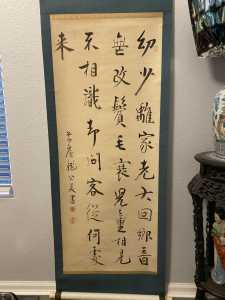 幼少離家老大回鄉音
無改鬢毛衰兒童相見
不相識却問客從何處
來